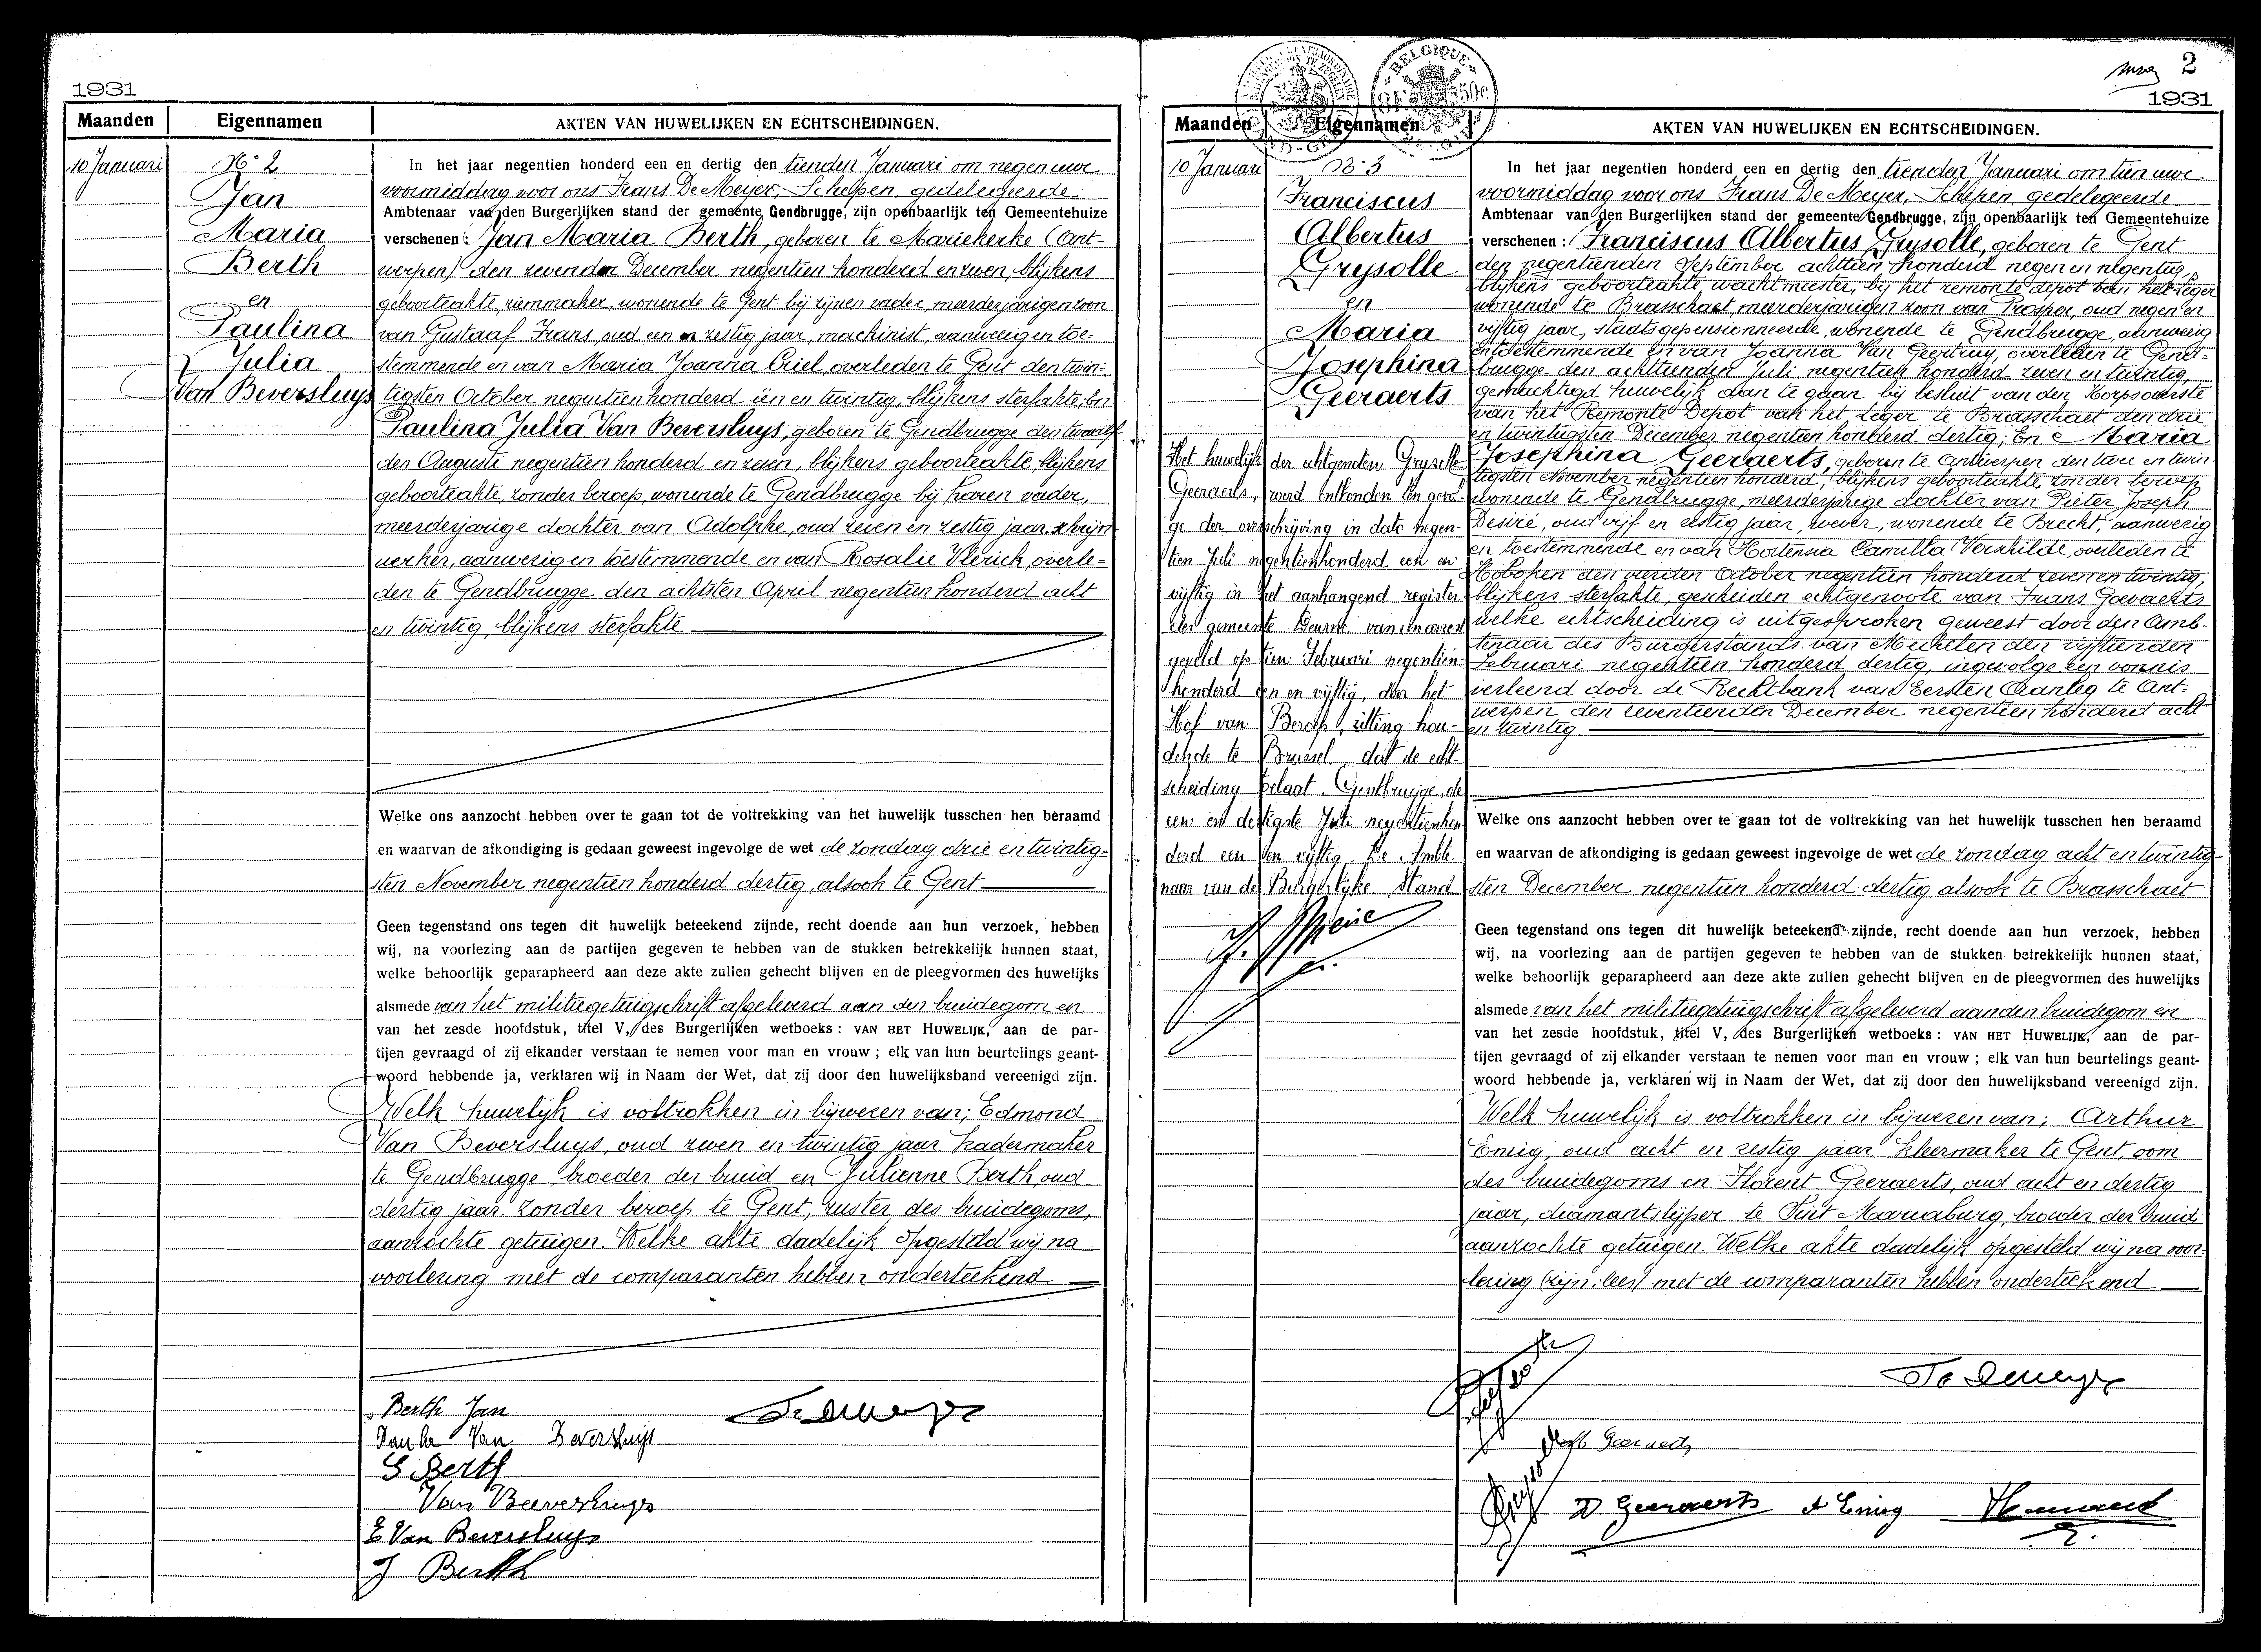 1931
Maanden Eigennamen AKTEN VAN HUWELIJKEN EN ECHTSCHEIDINGEN.
10 Januari
N° 2
Jan
Maria
Berth
en
Paulina
Julia
Van Beversluys
In het jaar negentien honderd een en dertig den tienden Januari om negen ure
voormiddag voor ons Frans De Meyer, Schepen, gedelegeerde
Ambtenaar van den Burgerlijken stand der gemeente Gendbrugge, zijn openbaarlijk ten Gemeentehuize
verschenen : Jan Maria Berth, geboren te Mariekerke (Ant-
werpen) den zevenden December negentien honderd en zeven, blijkens
geboorteakte, riemmaker, wonende te Gent bij zijnen vader, meerderjarigen zoon
van Gustaaf Frans, oud een en zestig jaar, machinist, aanwezig en toe-
stemmende en van Maria Joanna Criel, overleden te Gent den twin-
tigsten October negentien honderd één en twintig, blijkens sterfakte; En
Paulina Julia Van Beversluys, geboren te Gendbrugge den twaalf-
den Augusti negentien honderd en zeven, blijkens geboorteakte, blijkens
geboorteakte, zonder beroep, wonende te Gendbrugge bij haren vader,
meerderjarige dochter van Adolphe, oud zeven en zestig jaar, schrijn-
werker, aanwezig en toestemmende en van Rosalie Vlerick, overle-
den te Gendbrugge den achtsten April negentien honderd acht
en twintig, blijkens sterfakte
Welke ons aanzocht hebben over te gaan tot de voltrekking van het huwelijk tusschen hen beraamd
en waarvan de afkondiging is gedaan geweest ingevolge de wet de zondag drie en twintig-
sten November negentien honderd dertig, alsook te Gent
Geen tegenstand ons tegen dit huwelijk beteekend zijnde, recht doende aan hun verzoek, hebben
wij, na voorlezing aan de partijen gegeven te hebben van de stukken betrekkelijk hunnen staat,
welke behoorlijk geparapheerd aan deze akte zullen gehecht blijven en de pleegvormen des huwelijks
alsmede van het militiegetuigschrift afgeleverd aan den bruidegom en
van het zesde hoofdstuk, titel V, des Burgerlijken wetboeks : VAN HET HUWELIJK, aan de par-
tijen gevraagd of zij elkander verstaan te nemen voor man en vrouw ; elk van hun beurtelings geant-
woord hebbende ja, verklaren wij in Naam der Wet, dat zij door den huwelijksband vereenigd zijn.
Welk huwelijk is voltrokken in bijwezen van; Edmond
Van Beversluys, oud zeven en twintig jaar, kadermaker
te Gendbrugge, broeder der bruid en Julienne Berth, oud
dertig jaar, zonder beroep te Gent, zuster des bruidegoms,
aanzochte getuigen. Welke akte dadelijk opgesteld wij na
voorlezing met de comparanten hebben onderteekend
Berth Jan
Van Beversluys
G Berth
Van Beversluys
E Van Beversluys
J Berth
2
1931
Maanden Eigennamen AKTEN VAN HUWELIJKEN EN ECHTSCHEIDINGEN.
BELGIQUE
10 Januari
N° 3
Franciscus
Albertus
Grysolle
en
Maria
Josephina
Geeraerts
Het huwelijk der echtgenoten Grysolle
Geeraerts, werd ontbonden ten gevol-
ge der overschrijving in dato negen-
tien Juli negentienhonderd een en
vijftig in het aanhangend register
der gemeente Deurne van een arrest
geveld op tien Februari negentien-
honderd een en vijftig, door het
Hof van Beroep, zitting hou-
dende te Brussel dat de echt-
scheiding toelaat. Gentbrugge, de
een en dertigste Juli negentienhon
derd een en vijftig. De Ambte-
naar van de Burgerlijke Stand
In het jaar negentien honderd een en dertig den tienden Januari om tien ure
voormiddag voor ons Frans De Meyer, Schepen, gedelegeerde
Ambtenaar van den Burgerlijken stand der gemeente Gendbrugge, zijn openbaarlijk ten Gemeentehuize
verschenen : Franciscus Albertus Grysolle, geboren te Gent
den negentienden September achttien honderd negen en negentig,
blijkens geboorteakte wachtmeester, bij het remonte depot van het leger
wonende te Brasschaet, meerderjarigen zoon van Prosper, oud negen en
vijftig jaar, staatsgepensionneerde, wonende te Gendbrugge, aanwezig
en toestemmende en van Joanna Van Geertruy, overleden te Gend-
brugge den achttienden Juli negentien honderd zeven en twintig,
gemachtigd huwelijk aan te gaan bij besluit van den Korpsoverste
van het Remonte Depot van het Leger te Brasschaet den drie
en twintigsten December negentien honderd dertig; En Maria
Josephina Geeraerts, geboren te Antwerpen den twee en twin-
tigsten November negentien honderd, blijkens geboorteakte, zonder beroep
wonende te Gendbrugge, meerderjarige dochter van Pieter Joseph
Desiré, oud vijf en zestig jaar, wever, wonende te Brecht, aanwezig
en toestemmende en van Hortensia Camilla Verschilde, overleden te
Hoboken den vierden October negentien honderd zeven en twintig,
blijkens sterfakte, gescheiden echtgenoote van Frans Govaerts
welke echtscheiding is uitgesproken geweest door den Amb-
tenaar des Burgerstands van Mechelen den vijftienden
Februari negentien honderd dertig, ingevolge een vonnis
verleend door de Rechtbank van Eersten Aanleg te Ant-
werpen den zeventienden December negentien honderd acht
en twintig
Welke ons aanzocht hebben over te gaan tot de voltrekking van het huwelijk tusschen hen beraamd
en waarvan de afkondiging is gedaan geweest ingevolge de wet de zondag acht en twintig-
sten December negentien honderd dertig, alsook te Brasschaet
Geen tegenstand ons tegen dit huwelijk beteekend zijnde, recht doende aan hun verzoek, hebben
wij, na voorlezing aan de partijen gegeven te hebben van de stukken betrekkelijk hunnen staat,
welke behoorlijk geparapheerd aan deze akte zullen gehecht blijven en de pleegvormen des huwelijks
alsmede van het militiegetuigschrift afgeleverd aan den bruidegom en
van het zesde hoofdstuk, titel V, des Burgerlijken wetboeks : VAN HET HUWELIJK, aan de par-
tijen gevraagd of zij elkander verstaan te nemen voor man en vrouw ; elk van hun beurtelings geant-
woord hebbende ja, verklaren wij in Naam der Wet, dat zij door den huwelijksband vereenigd zijn.
Welk huwelijk is voltrokken in bijwezen van; Arthur
Emig, oud acht en zestig jaar, kleermaker te Gent, oom
des bruidegoms en Florent Geeraerts, oud acht en dertig
jaar, diamantslijper te Sint Mariaburg, broeder der bruid
aanzochte getuigen. Welke akte dadelijk opgesteld wij na voor-
lezing (zijn: lees) met de comparanten hebben onderteekend
Geeraerts
D Geeraerts A Emig